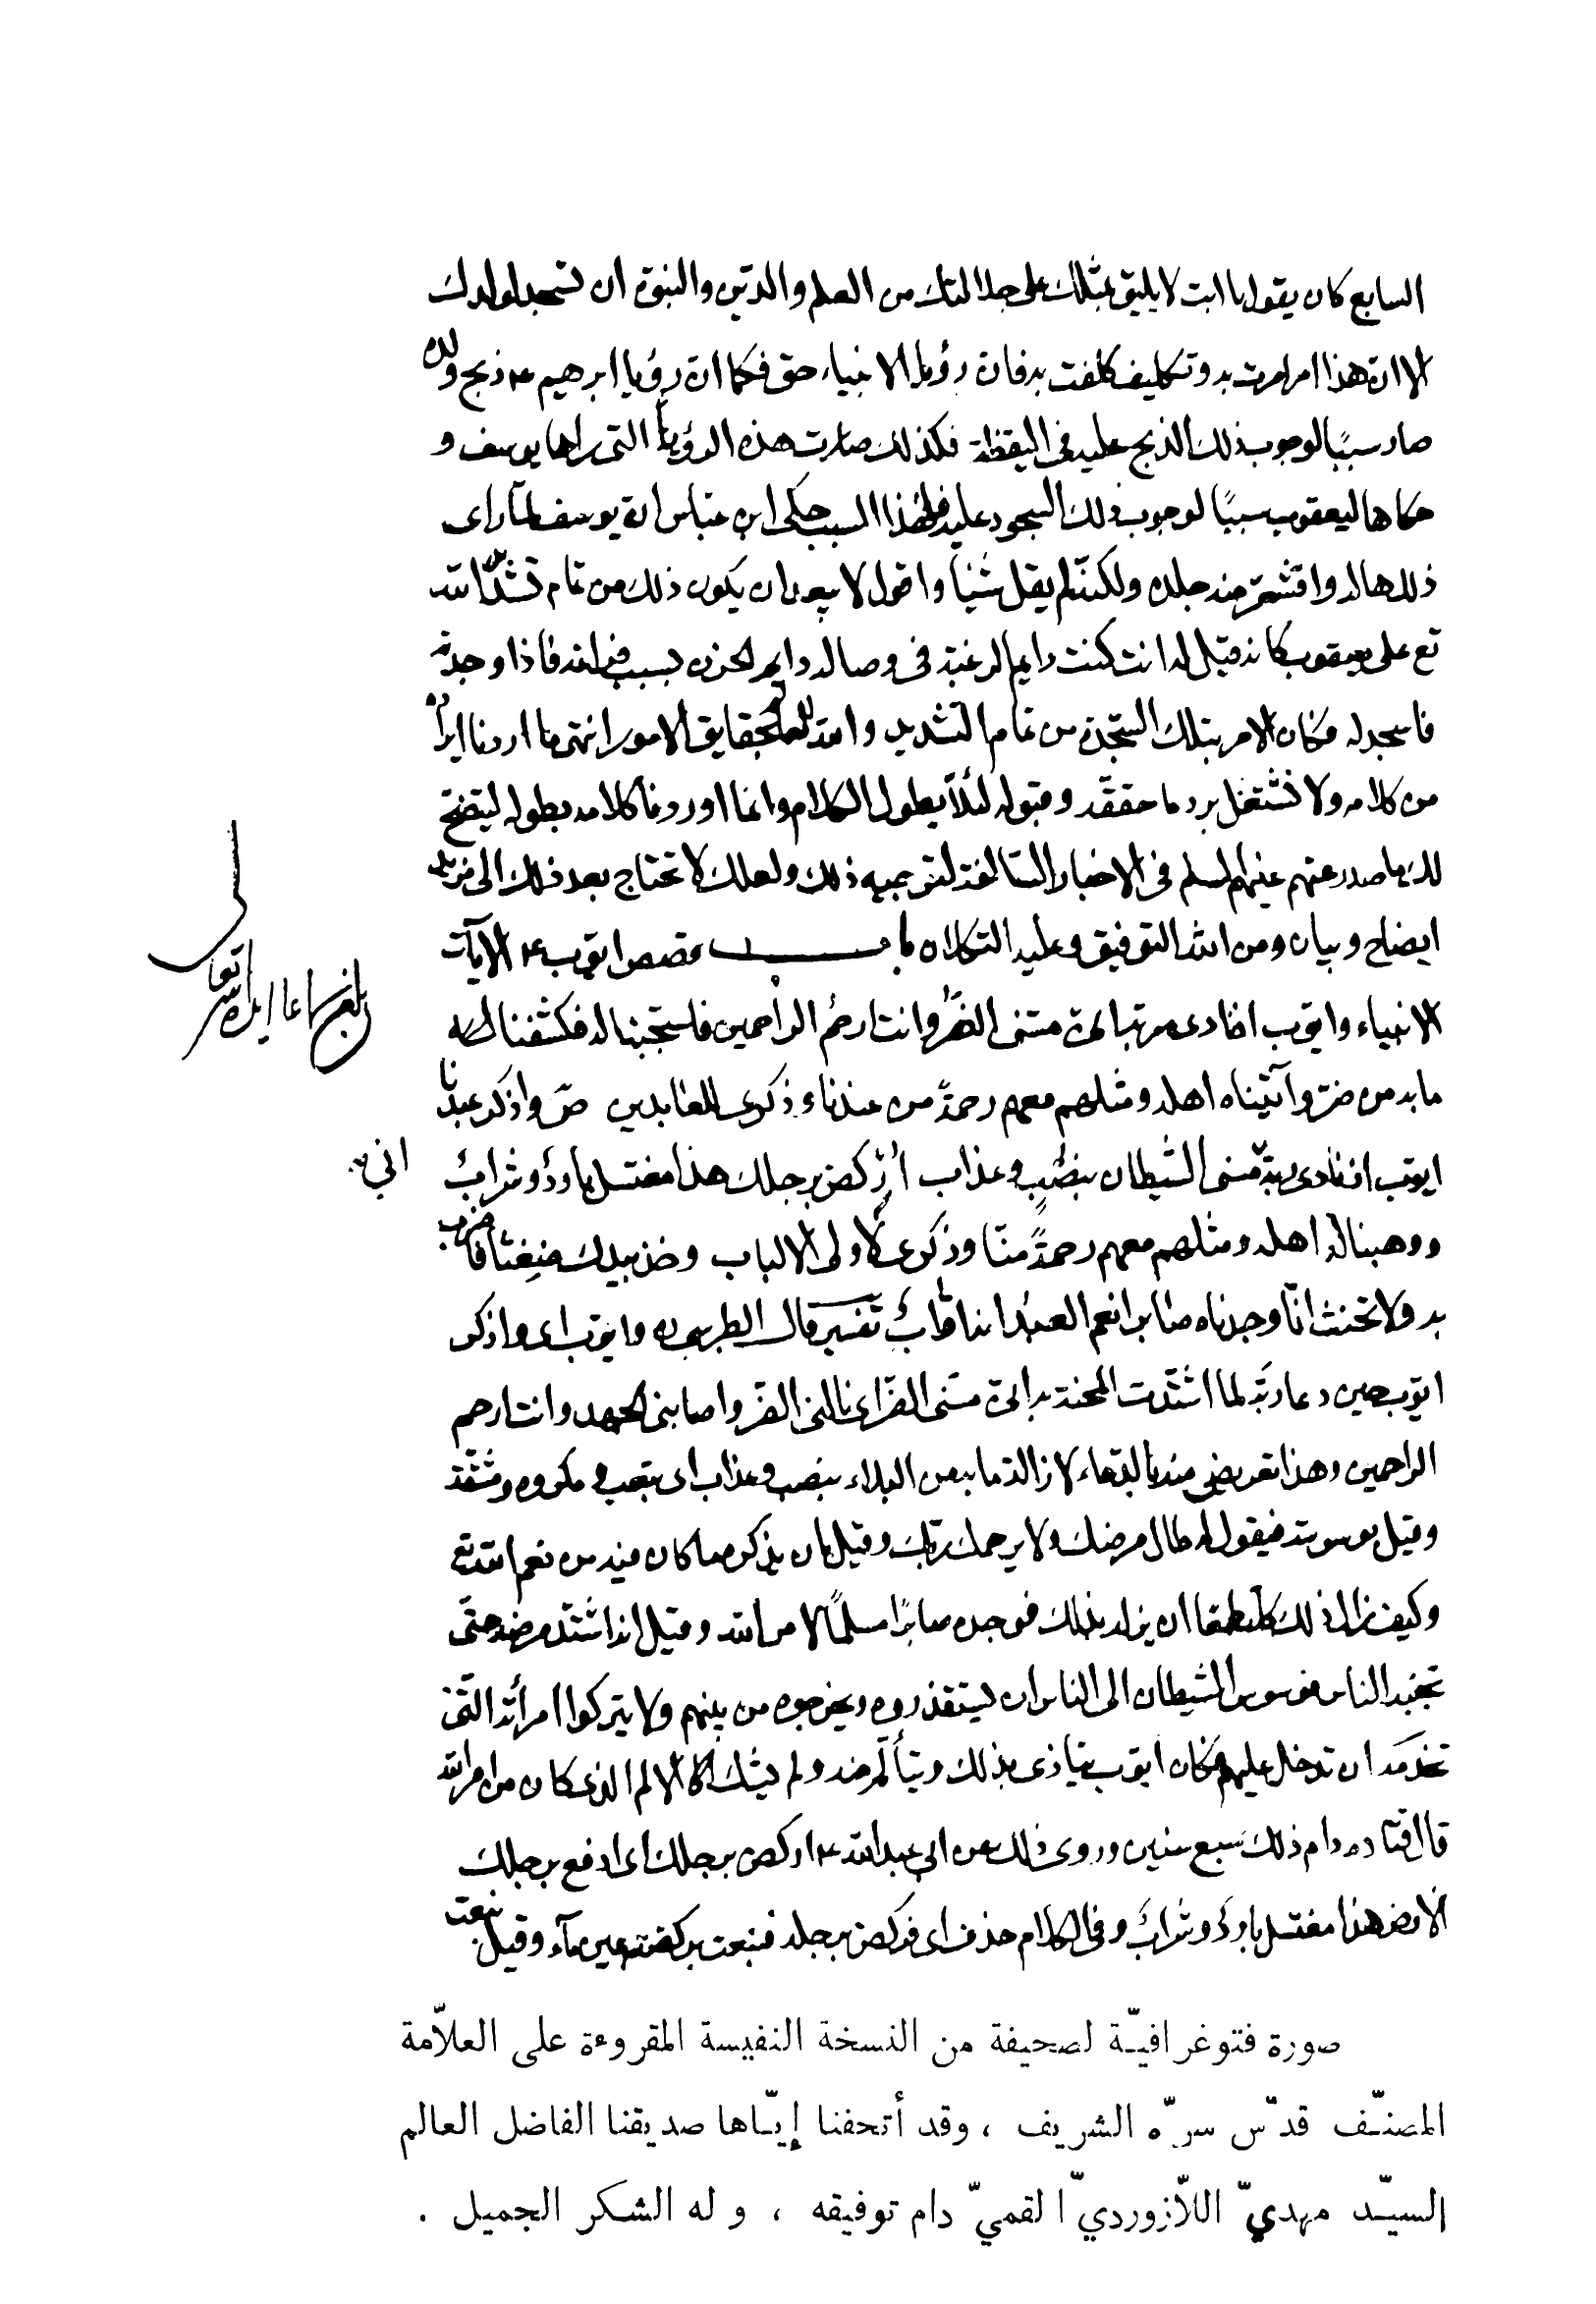 السابع كان يقول يا ابت لا يليق بمثلك على جلالتك من العلم والدين والنبوة ان تسجد لولدك
الا ان هذا امر امرت به وتكليف كلفت به فان رؤيا الانبياء حق فكما ان رؤيا ابرهيم ع ذبح ولده
صار سببًا لوجوب ذلك الذبح عليه فى اليقظة فكذلك صارت هذه الرؤيا التى راها يوسف و
حكاها ليعقوب سببًا لوجوب ذلك السجود عليه فلهذا السبب حكى ابن عباس ان يوسف لما رأى
ذلك هاله واقشعر منه جلده ولكنه لم يقل شيئا واقول لا يبعد ان يكون ذلك من تمام تشديد الله
تع على يعقوب كانه قيل له انت كنت دايم الرغبة فى وصاله دايم الحزن بسبب فراقه فاذا وجدته
فاسجد له فكان الامر بتلك السجدة من تمام التشديد والله العالم بحقايق الامور انتهى ما اردنا ايراده
من كلامه ولا نشتغل برد ما حققه وقبوله لئلا يطول الكلام وانما اوردنا كلامه بطوله ليتضح
لك ما صدر عنهم عليهم السلم فى الاخبار السالفة لتوجيه ذلك ولعلك لا تحتاج بعد ذلك الى مزيد
ايضاح وبيان ومن الله التوفيق وعليه التكلان باب قصص ايوب ع الايآت
الانبياء وايوب اذ نادى ربه انى مسنى الضر وانت ارحم الراحمين فاستجبنا له فكشفنا
ما به من ضر وآتيناه اهله ومثلهم معهم رحمةً من عندنا وذكرى للعابدين ص واذكر عبدنا
ايوب اذ نادى ربه مسنى الشيطان بنصب وعذاب اركض برجلك هذا مغتسل بارد وشراب
اني
ووهبنا له اهله ومثلهم معهم رحمةً منا وذكرى لاولى الالباب وخذ بيدك ضغثا فاضرب
به ولا تحنث انا وجدناه صابرا نعم العبد انه اواب تفسير قال الطبرسى ره وايوب اى واذكر
ايوب حين دعا ربه لما اشتدت المحنة به انى مسنى الضر اى نالنى الضر واصابنى الجهد وانت ارحم
الراحمين وهذا تعريض منه بالدعاء لازالة ما به من البلاء بنصب وعذاب اى بتعب ومكروه ومشقة
وقيل بوسوسة فيقول له طال مرضك ولا يرحمك ربك وقيل بان يذكره ما كان فيه من نعم الله تع
وكيف زال ذلك كله طمعا ان يزله بذلك فوجده صابرًا مسلمًا لامر الله وقيل انه اشتد مرضه حتى
تجنبه الناس فوسوس الشيطان الى الناس ان يستقذروه ويخرجوه من بينهم ولا يتركوا امرأته التى
تخدمه ان تدخل عليهم فكان ايوب يتاذى بذلك ويتألم منه ولم يشك الالم الذى كان من امر الله
قال قتادة دام ذلك سبع سنين وروى ذلك عن ابى عبدالله ع اركض برجلك اى ادفع برجلك
الارض هذا مغتسل بارد وشراب وفى الكلام حذف اى فركض برجله فنبعت بركضته عين مآء وقيل نبعت
صورة فتوغرافيّة لصحيفة من النسخة النفيسة المقروءة على العلاّمة
المصنّف قدّس سرّه الشريف ، وقد أتحفنا إيّاها صديقنا الفاضل العالم
السيّد مهديّ اللاّزورديّ القميّ دام توفيقه ، و له الشكر الجميل .